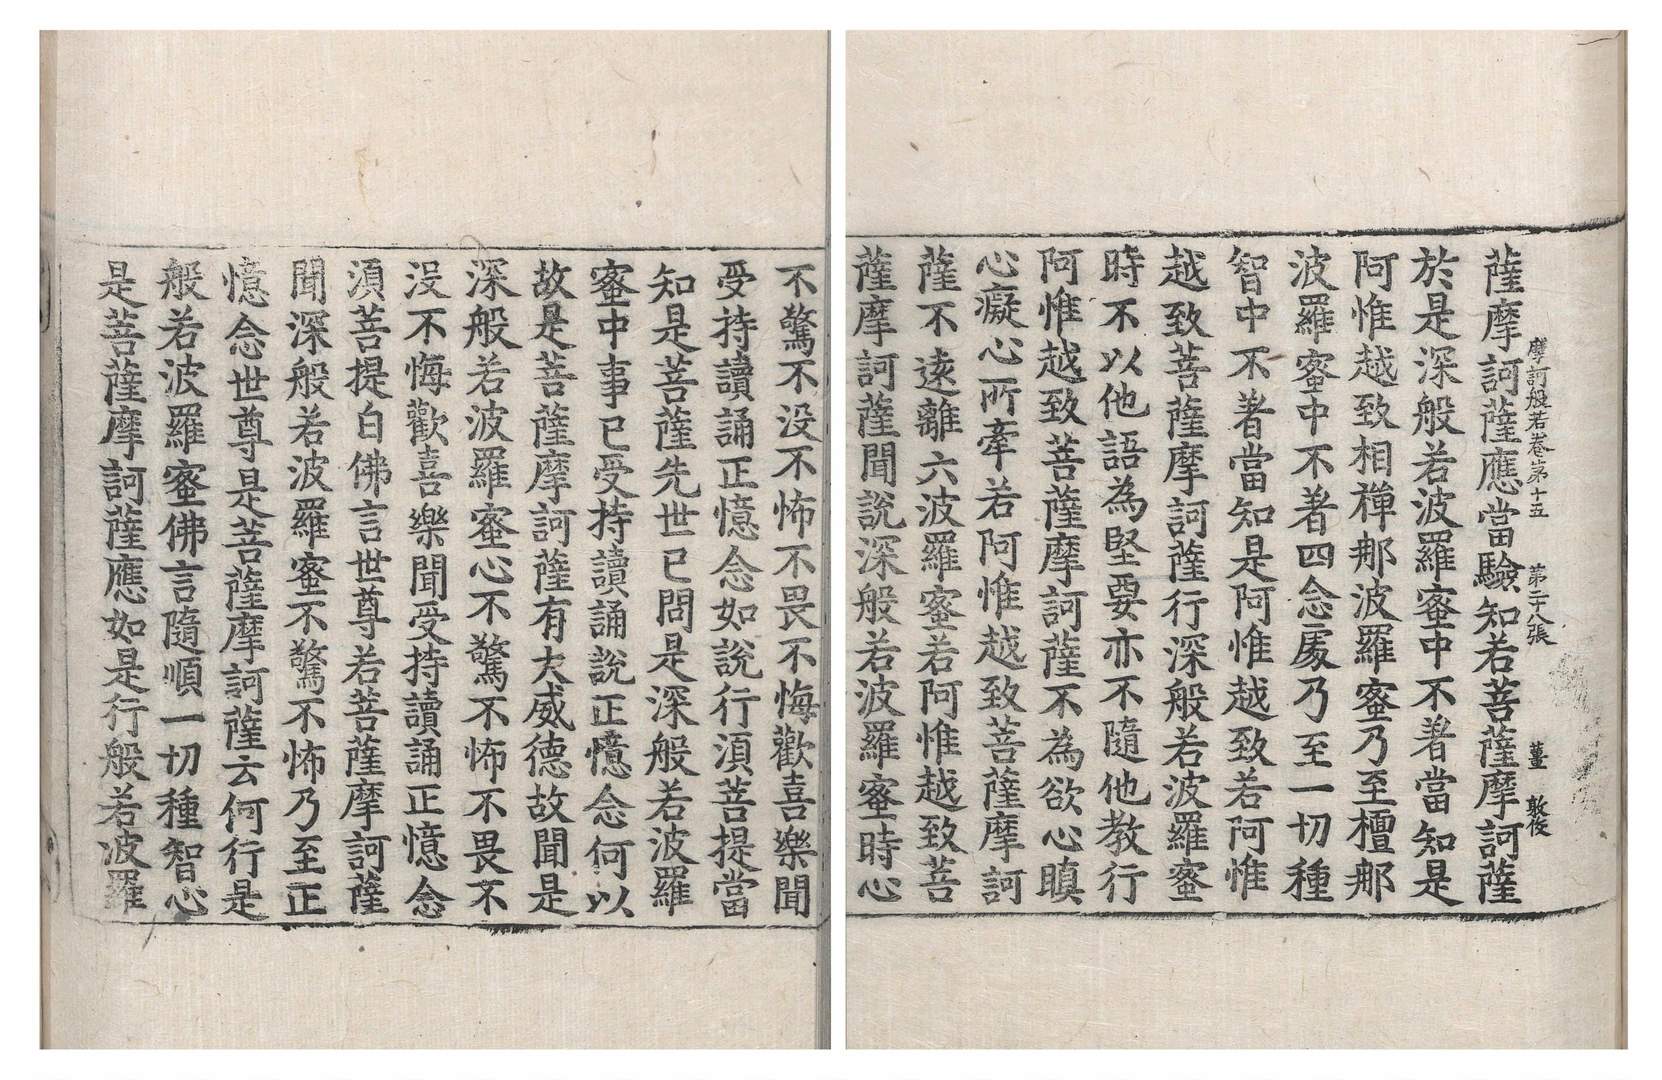 摩訶般若卷第十五　第二十八張　薑　敦俊
薩摩訶薩應當驗知若菩薩摩訶薩
於是深般若波羅蜜中不著當知是
阿惟越致相禪那波羅蜜乃至檀那
波羅蜜中不著四念處乃至一切種
智中不著當知是阿惟越致若阿惟
越致菩薩摩訶薩行深般若波羅蜜
時不以他語為堅要亦不隨他教行
阿惟越致菩薩摩訶薩不為欲心瞋
心癡心所牽若阿惟越致菩薩摩訶
薩不遠離六波羅蜜若阿惟越致菩
薩摩訶薩聞說深般若波羅蜜時心
不驚不没不怖不畏不悔歡喜樂聞
受持讀誦正憶念如說行須菩提當
知是菩薩先世已問是深般若波羅
蜜中事已受持讀誦說正憶念何以
故是菩薩摩訶薩有大威德故聞是
深般若波羅蜜心不驚不怖不畏不
没不悔歡喜樂聞受持讀誦正憶念
須菩提白佛言世尊若菩薩摩訶薩
聞深般若波羅蜜不驚不怖乃至正
憶念世尊是菩薩摩訶薩云何行是
般若波羅蜜佛言隨順一切種智心
是菩薩摩訶薩應如是行般若波羅